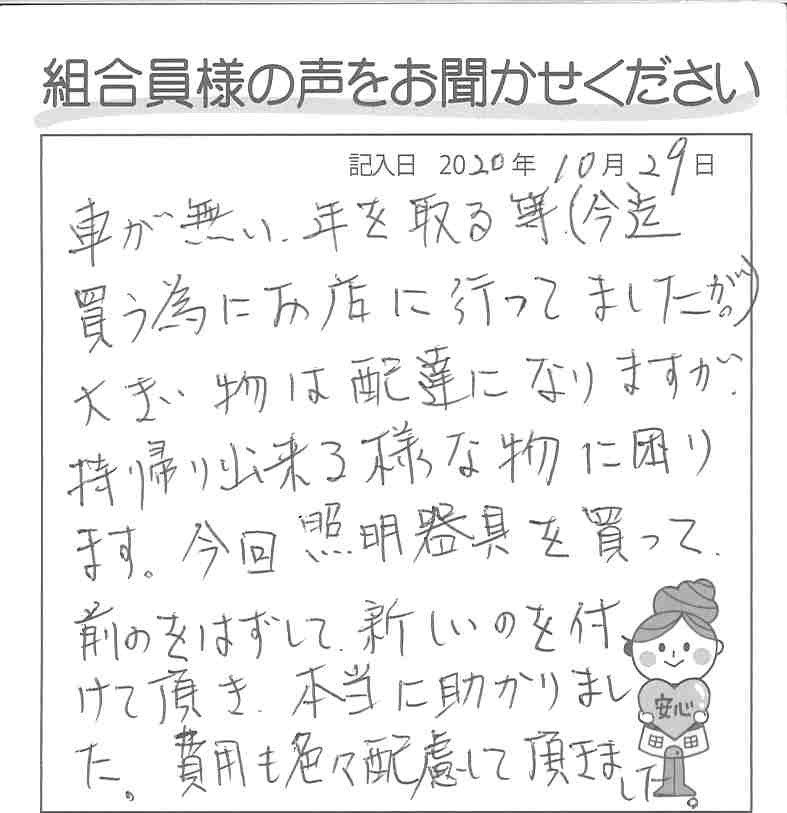 組合員様の声をお聞かせください
記入日 2020年 10月29日
車が無い、年を取る等、(今迄
買う為にお店に行ってましたが。)
大きい物は配達になりますが、
持帰り出来る様な物に困り
ます。今回照明器具を買って、
前のをはずして、新しいのを付
けて頂き、本当に助かりまし
た。費用も色々配慮して頂きました。
安心